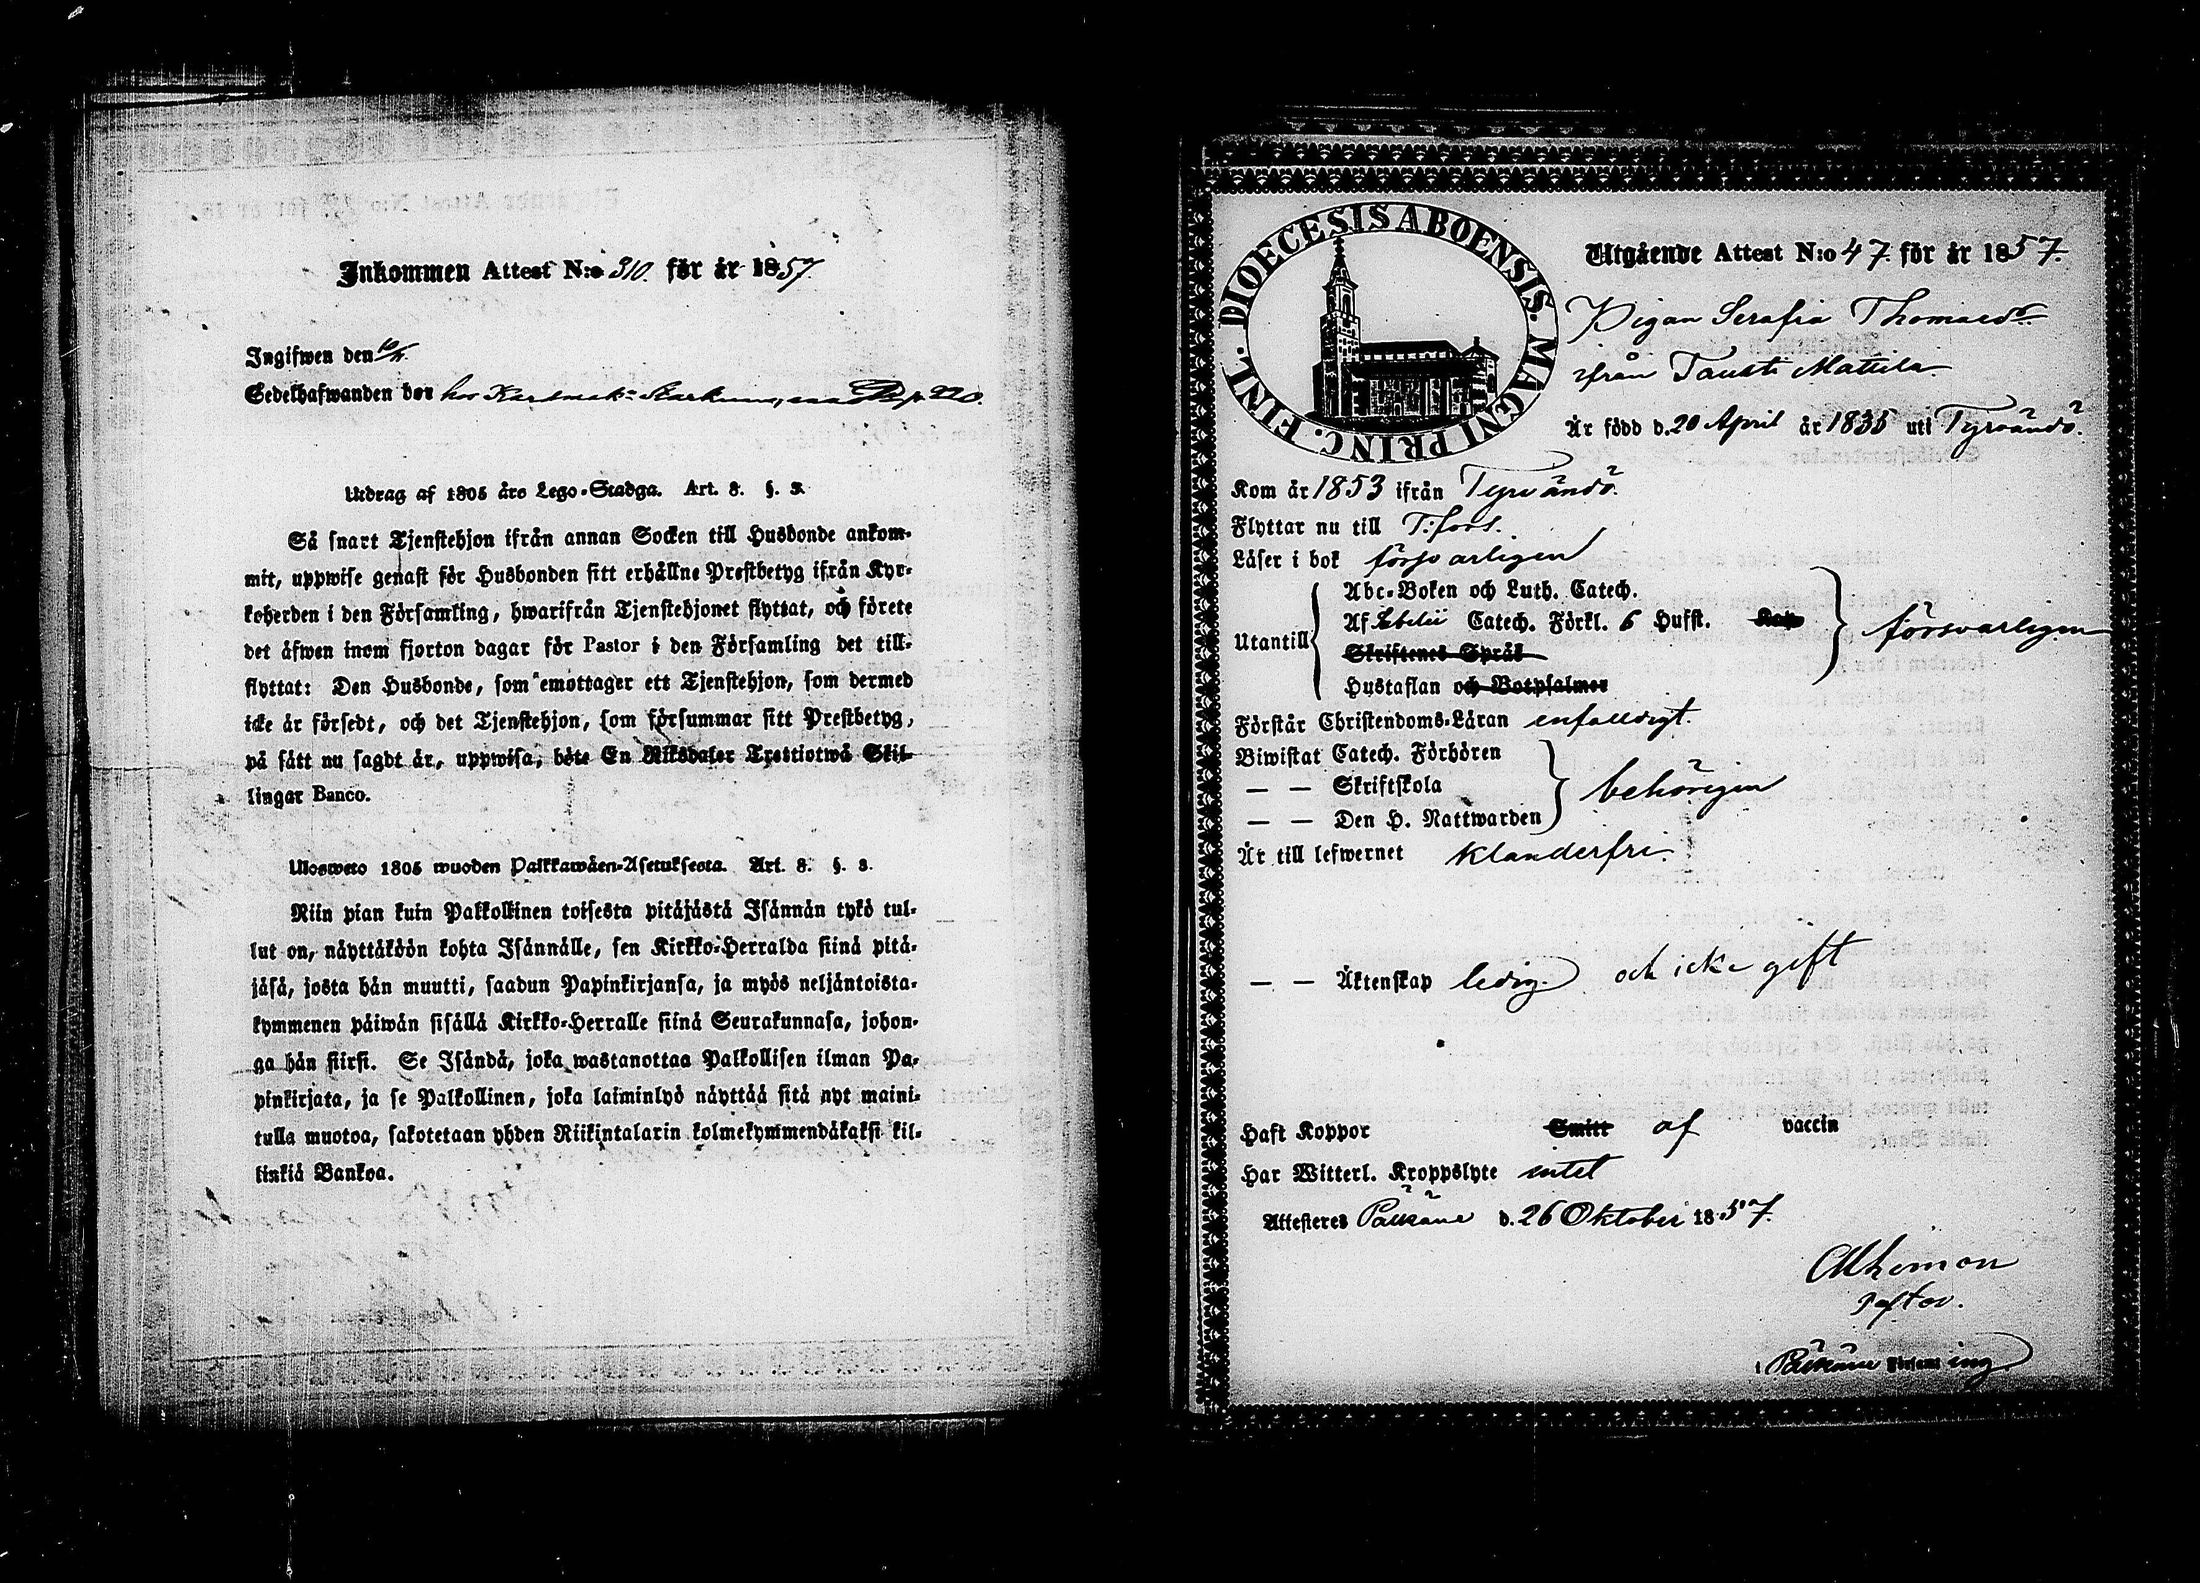 Inkommen Attest N:o 310. för år 1857.
Ingifwen den
Sedelhafwanden bor hos
Utdrag af 1805 års Lego-Stadga. Art. 8. §. 3.
Så snart Tjenstehjon ifrån annan Socken till Husbonde ankom-
mit, uppwise genast för Husbonden sitt erhållne Prestbetyg ifrån Kyr-
koherden i den Församling, hwarifrån Tjenstehjonet flyttat, och förete
det äfwen inom fjorton dagar för Pastor i den Församling det till-
flyttat: Den Husbonde, som emottager ett Tjenstehjon, som dermed
icke är försedt, och det Tjenstehjon, som försummar sitt Prestbetyg,
på sätt nu sagdt är, uppwisa, böte En Riksdaler Trettiotwå Skil-
lingar Banco.
Ulosweto 1805 wuoden Palkkawäen-Asetuksesta. Art. 8. §. 3.
Niin pian kuin Palkollinen toisesta pitäjästä Isännän tykö tul-
lut on, näyttäköön kohta Isännälle, sen Kirkko-Herralda siinä pitä-
jäsä, josta hän muutti, saadun Papinkirjansa, ja myös neljäntoista-
kymmenen päiwän sisällä Kirkko-Herralle siinä Seurakunnasa, johon-
ga hän siirsi. Se Isändä, joka wastanottaa Palkollisen ilman Pa-
pinkirjata, ja se Palkollinen, joka laiminlyö näyttää sitä nyt maini-
tulla muotoa, sakotetaan yhden Riikintalarin kolmekymmendäkaksi kil-
linkiä Bankoa.
DIOECESIS ABOENSIS. MAGNI PRINC. FINL.
Utgående Attest N:o 47 för år 1857.
Pigan Serafia Thomasdr
ifrån Tausti Mattila
Är född d. 20 April år 1835 uti Tyrvändö.
Kom år 1853 ifrån Tyrvändö.
Flyttar nu till T:fors.
Läser i bok försvarligen
Utantill
Abc-Boken och Luth. Catech.
Af Catech. Förkl. 6 Hufst. Kap.
Skriftenes Språk
Hustaflan och Botpsalmer
försvarligen
Förstår Christendoms-Läran enfalldigt.
Biwistat Catech. Förhören
— — Skriftskola
— — Den H. Nattwarden
behörigen
Är till lefwernet klanderfri.
— — Äktenskap ledig och icke gift
Haft Koppor Smitt af vaccin
Har Witterl. Kroppslyte intet
Attesteres Pälkäne d. 26 Oktober 1857.
Pastor.
i Pälkäne Församling